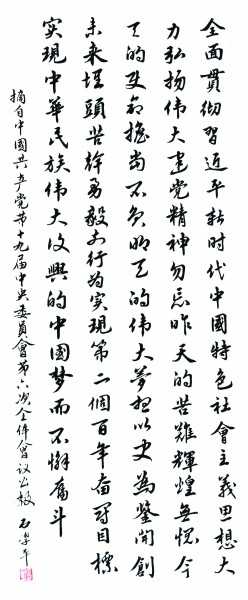 全面貫彻習近平新时代中國特色社會主義思想大
力弘扬伟大建党精神勿忘昨天的苦難輝煌無愧今
天的使命擔當不负明天的伟大夢想以史為鉴開創
未来埋頭苦幹勇毅前行為实現第二個百年奋鬥目標
實現中華民族伟大復興的中國梦而不懈奮斗
摘自中國共产党第十九届中央委員會第六次全体會议公報 石學平